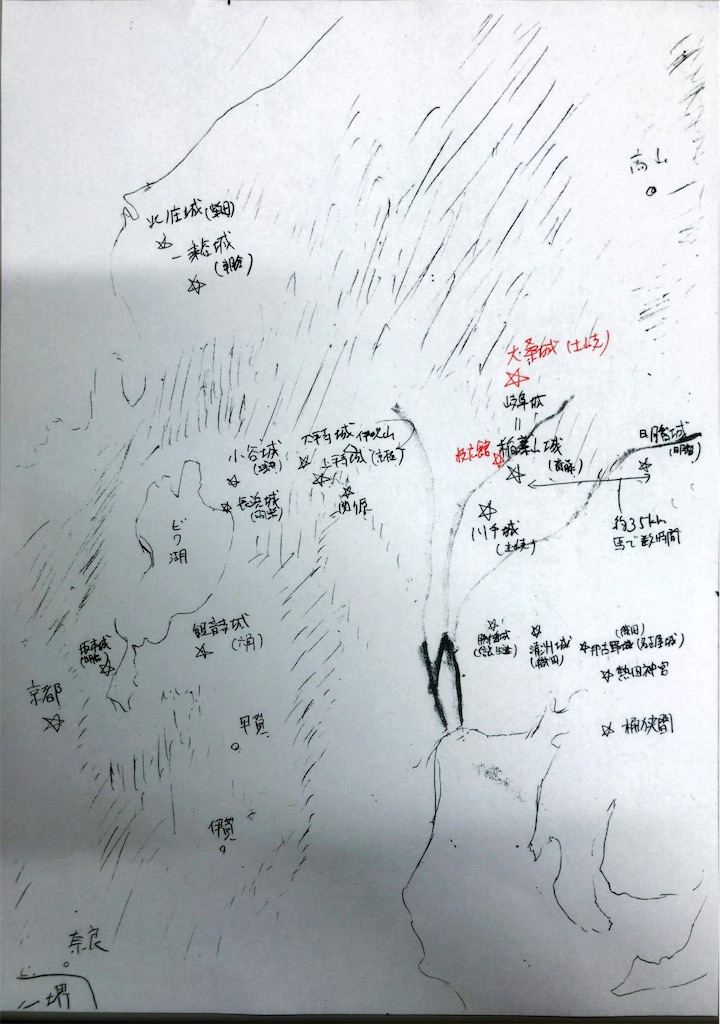 高山
北庄城(柴田)
一乗谷城
(朝倉)
大桑城(土岐)
岐阜城
=
稲葉山城
(斎藤)
大平寺城
伊吹山
上平寺城
関ヶ原
小谷城
長浜城
ビワ湖
川手城
(土岐)
約35km
馬で数時間
坂本城
観音寺城
(六角)
京都
清洲城
(織田)
(織田)
那古野城(名古屋城)
熱田神宮
桶狭間
甲賀
伊賀
奈良
堺